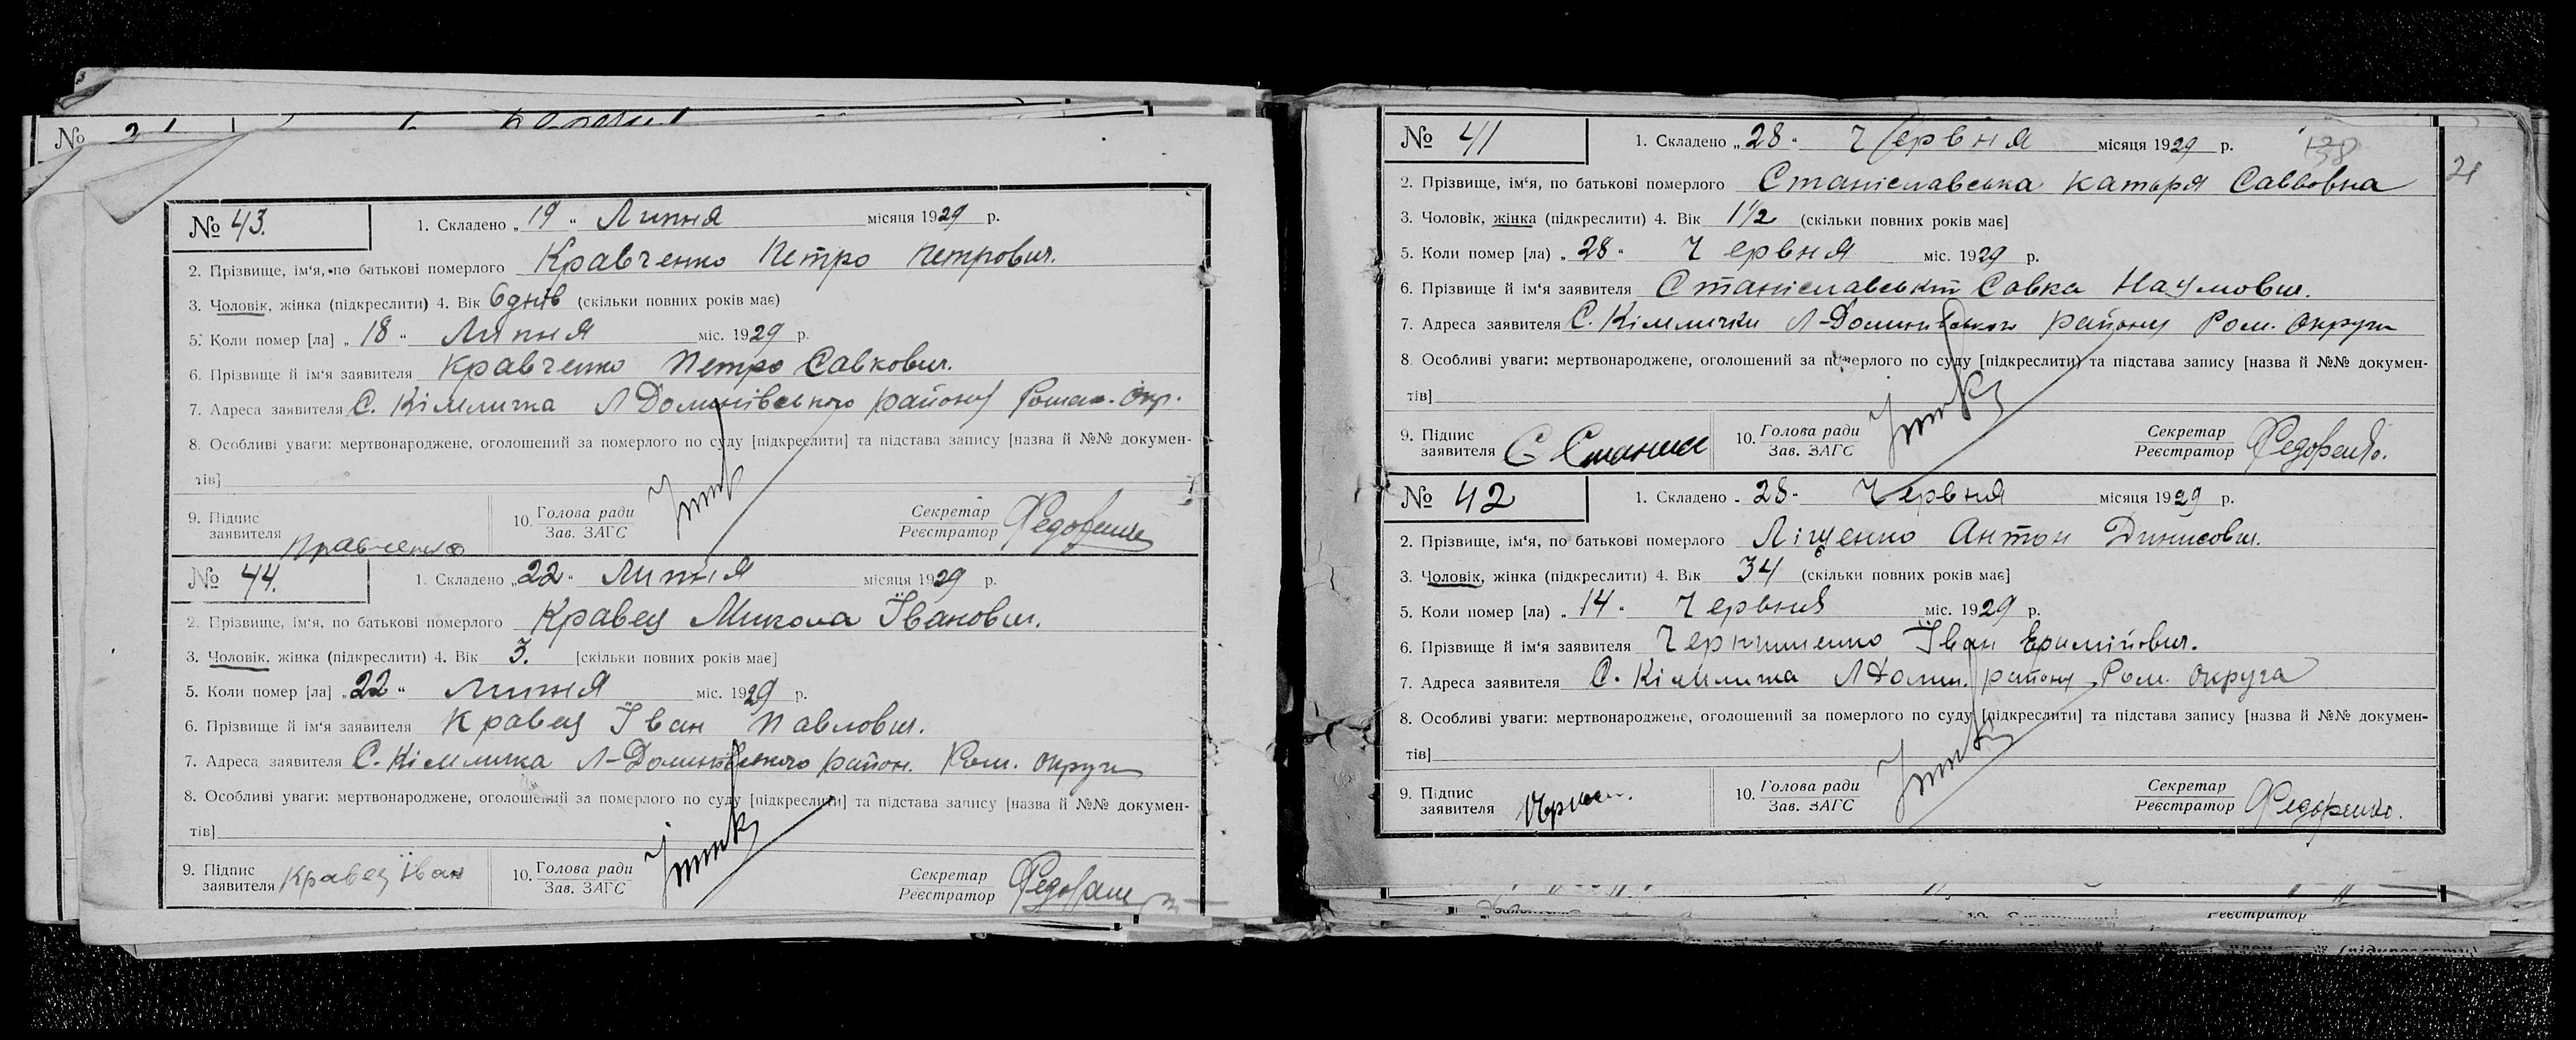 № 43. 1. Складено „ 19 “ Липня місяця 1929 р.
2. Прізвище, ім‘я, по батькові померлого Кравченко Петро Петрович.
3. Чоловік, жінка (підкреслити) 4. Вік 6 днів (скільки повних років має)
5. Коли помер [ла] „ 18 “ Липня міс. 1929 р.
6. Прізвище й ім‘я заявителя Кравченко Петро Савкович.
7. Адреса заявителя С. Кімличка Л Доминівського району Ромен. Окр.
8. Особливі уваги: мертвонароджене, оголошений за померлого по суду [підкреслити] та підстава запису [назва й №№ докумен-
тів]
9. Підпис заявителя Кравченко 10. Голова ради Зав. ЗАГС Секретар Реєстратор Федоренко
№ 44. 1. Складено „ 22 “ Липня місяця 1929 р.
2. Прізвище, ім‘я, по батькові померлого Кравец Микола Їванович.
3. Чоловік, жінка (підкреслити) 4. Вік 3. [скільки повних років має]
5. Коли помер [ла] „ 22 “ Липня міс. 1929 р.
6. Прізвище й ім‘я заявителя Кравец Їван Павлович.
7. Адреса заявителя С. Кімличка Л-Доминівського район. Ром. Округи
8. Особливі уваги: мертвонароджене, оголошений за померлого по суду [підкреслити] та підстава запису [назва й №№ докумен-
тів]
9. Підпис заявителя Кравец Їван 10. Голова ради Зав. ЗАГС Секретар Реєстратор Федоренко
№ 41 1. Складено „ 28 “ Червня місяця 1929 р. 138
21
2. Прізвище, ім‘я, по батькові померлого Станіславська Катеря Саввовна
3. Чоловік, жінка (підкреслити) 4. Вік 1 1/2 (скільки повних років має]
5. Коли помер [ла) „ 28 “ Червня міс. 1929 р.
6. Прізвище й ім‘я заявителя Станіславський Савка Наумович.
7. Адреса заявителя С. Кімлички Л-Доминівського району Ром. Округи
8. Особливі уваги: мертвонароджене, оголошений за померлого по суду [підкреслити) та підстава запису [назва й №№ докумен-
тів]
9. Підпис заявителя С Станисл 10. Голова ради Зав. ЗАГС Секретар Реєстратор Федоренко.
№ 42 1. Складено „ 28 “ Червня місяця 1929 р.
2. Прізвище, ім‘я, по батькові померлого Ліщенко Антон Динисович.
3. Чоловік, жінка (підкреслити) 4. Вік 34 (скільки повних років має]
5. Коли помер [ла) „ 14 “ Червня міс. 1929 р.
6. Прізвище й ім‘я заявителя Їван Еримійович.
7. Адреса заявителя С. Кімличка Л Домин. району Ром. Округа
8. Особливі уваги: мертвонароджене, оголошений за померлого по суду [підкреслити] та підстава запису [назва й №№ докумен-
тів]
9. Підпис заявителя 10. Голова ради Зав. ЗАГС Секретар Реєстратор Федоренко.
Реєстратор